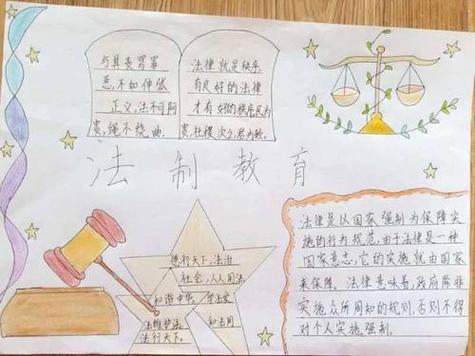 与其丧骂罪
恶,不如伸张
正义,法不可阿
贵,绳不挠曲。
法律就是秩序
有良好的法律
才有好的秩序民为
贵,社稷次之,君为轻。
法制教育
德行天下,法治
社会,人人司法
和谐中华,学法家
法维护法,和法用
法行天下。
法律是以国家强制为保障实
施的行为规范,由于法律是一种
国家意志,它的实施就由国家
来保障。法律意味着,政府除非
实施众所周知的规则,否则不得
对个人实施强制。